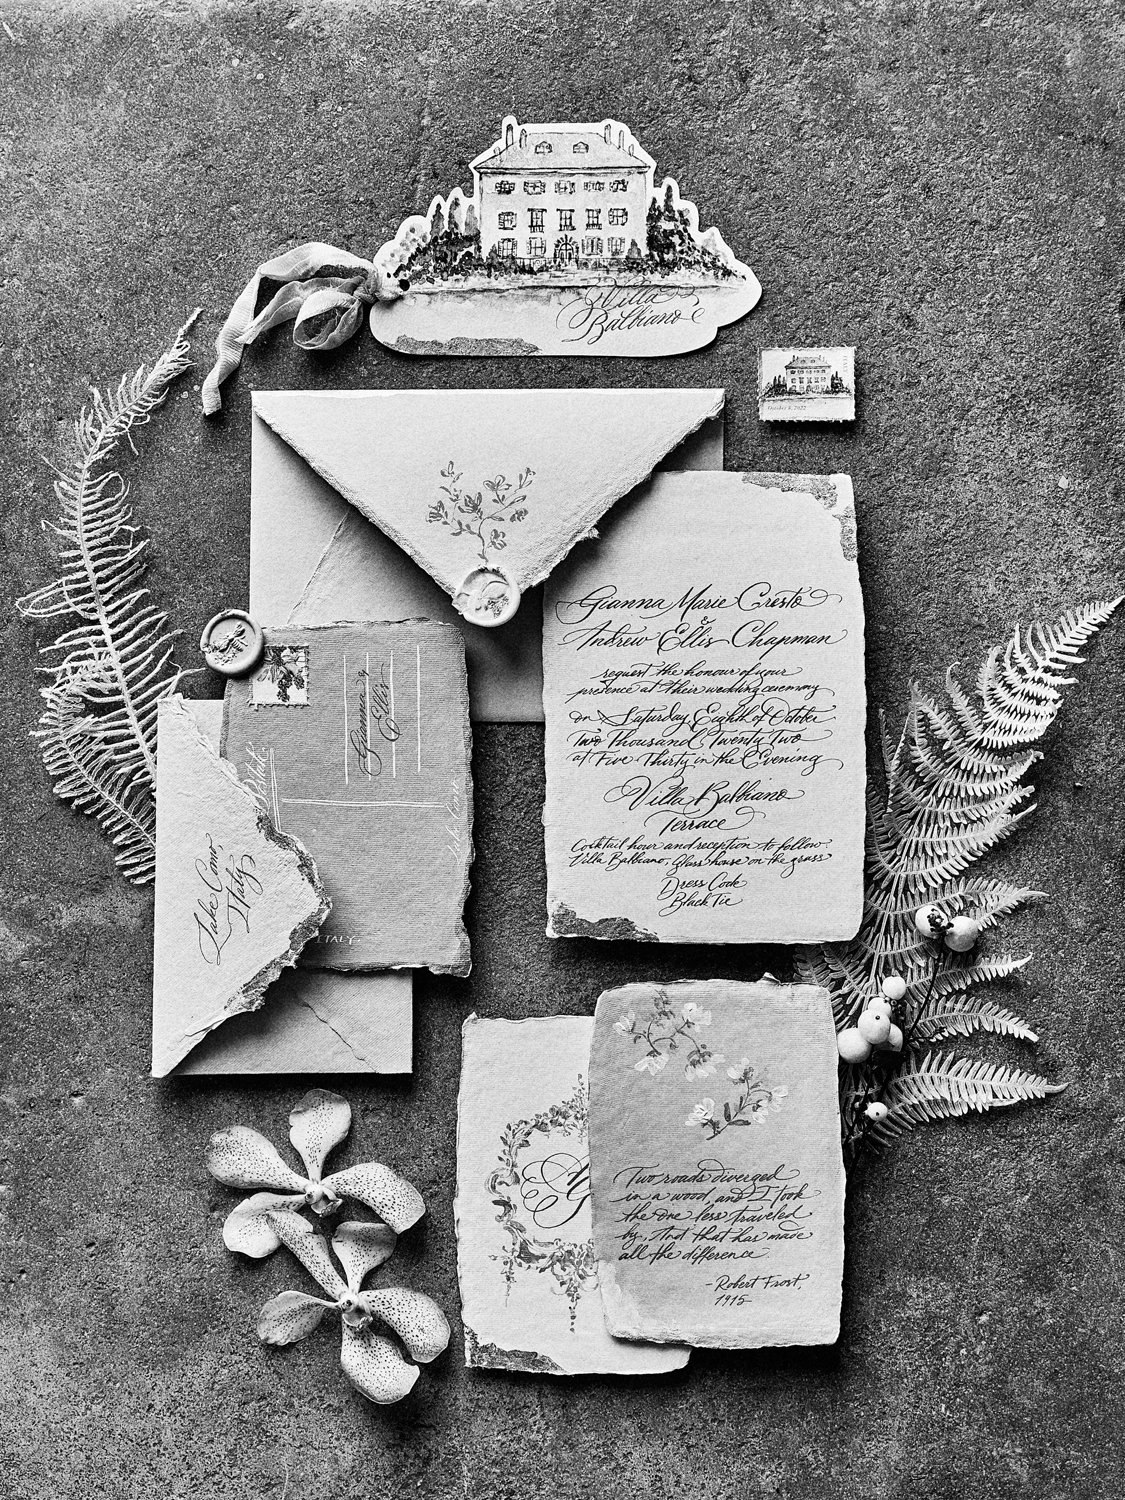 Villa
Balbiano
October 8, 2022
Gianna Marie Cresto
&
Andrew Ellis Chapman
request the honour of your
presence at their wedding ceremony
on Saturday, Eighth of October
Two Thousand Twenty Two
at Five Thirty in the Evening
Villa Balbiano
Terrace
Cocktail hour and reception to follow:
Villa Balbiano, Glass house on the grass
Dress Code
Black Tie
Gianna &
Ellis
ITALY
Lake Como,
Italy
Two roads diverged
in a wood, and I took
the one less traveled
by, And that has made
all the difference
-Robert Frost,
1915